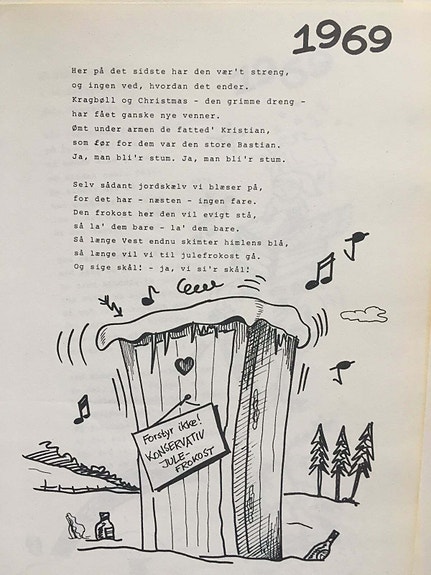 1969
Her på det sidste har den vær't streng,
og ingen ved, hvordan det ender.
Kragbøll og Christmas - den grimme dreng -
har fået ganske nye venner.
Ømt under armen de fatted' Kristian,
som før for dem var den store Bastian.
Ja, man bli'r stum. Ja, man bli'r stum.
Selv sådant jordskælv vi blæser på,
for det har - næsten - ingen fare.
Den frokost her den vil evigt stå,
så la' dem bare - la' dem bare.
Så længe Vest endnu skimter himlens blå,
så længe vil vi til julefrokost gå.
Og sige skål! - ja, vi si'r skål!
Forstyr ikke!
KONSERVATIV
JULE-
FROKOST